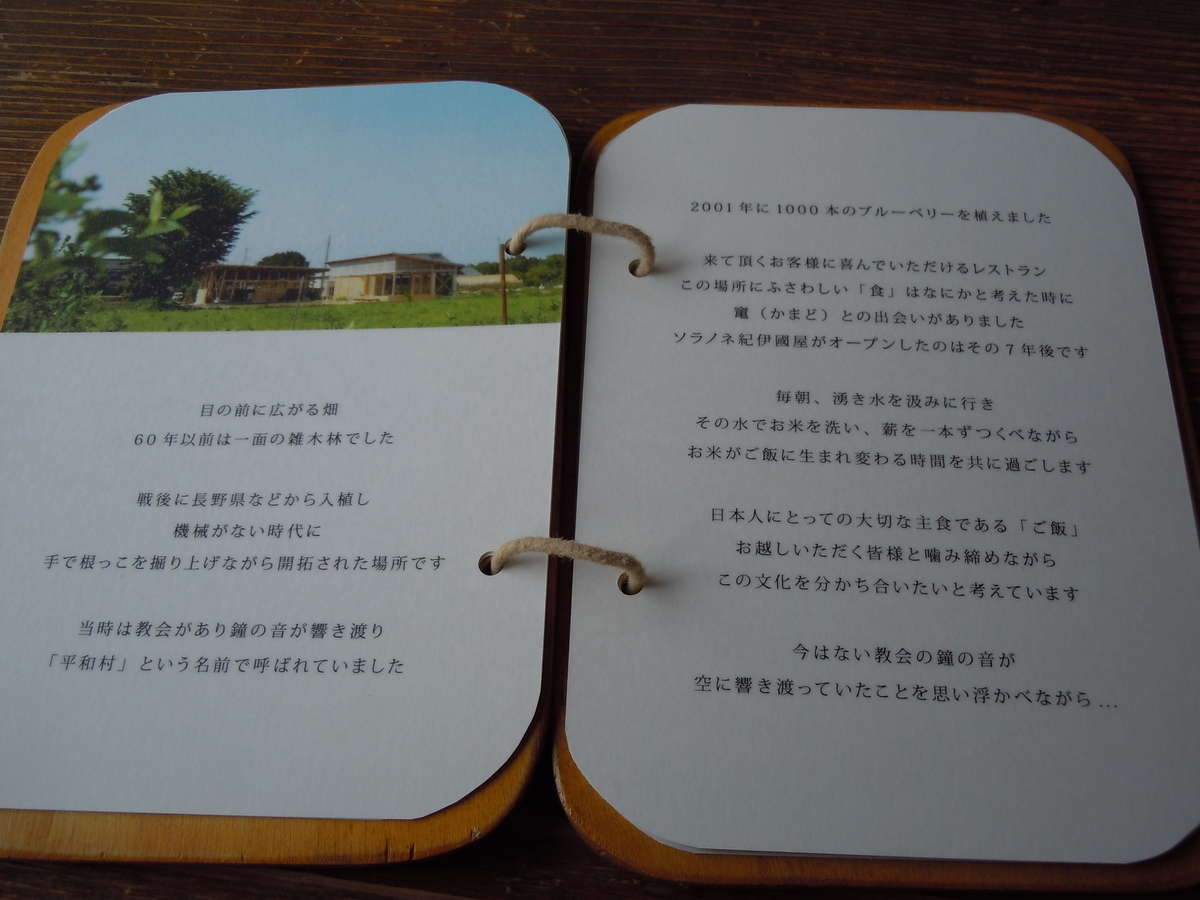 目の前に広がる畑
60年以前は一面の雑木林でした
戦後に長野県などから入植し
機械がない時代に
手で根っこを掘り上げながら開拓された場所です
当時は教会があり鐘の音が響き渡り
「平和村」という名前で呼ばれていました
2001年に1000本のブルーベリーを植えました
来て頂くお客様に喜んでいただけるレストラン
この場所にふさわしい「食」はなにかと考えた時に
竃（かまど）との出会いがありました
ソラノネ紀伊國屋がオープンしたのはその7年後です
毎朝、湧き水を汲みに行き
その水でお米を洗い、薪を一本ずつくべながら
お米がご飯に生まれ変わる時間を共に過ごします
日本人にとっての大切な主食である「ご飯」
お越しいただく皆様と噛み締めながら
この文化を分かち合いたいと考えています
今はない教会の鐘の音が
空に響き渡っていたことを思い浮かべながら…